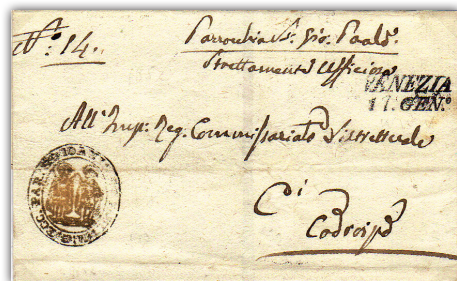 N°: 14.
Parrochia S. Gio: Paolo.
Strettamente Ufficiosa
VENEZIA
17. GEN.°
All' Imp: Reg. Commissariato Distrettuale
Di
Codroipo